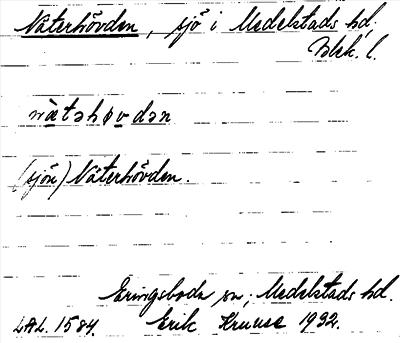 Näterhövden, sjö i Medelstads hd,
Blek. l.
nætəhøvdən
(sjön) Näterhövden.
Eringsboda sn, Medelstads hd.
LAL. 1584. Erik Kruuse 1932.